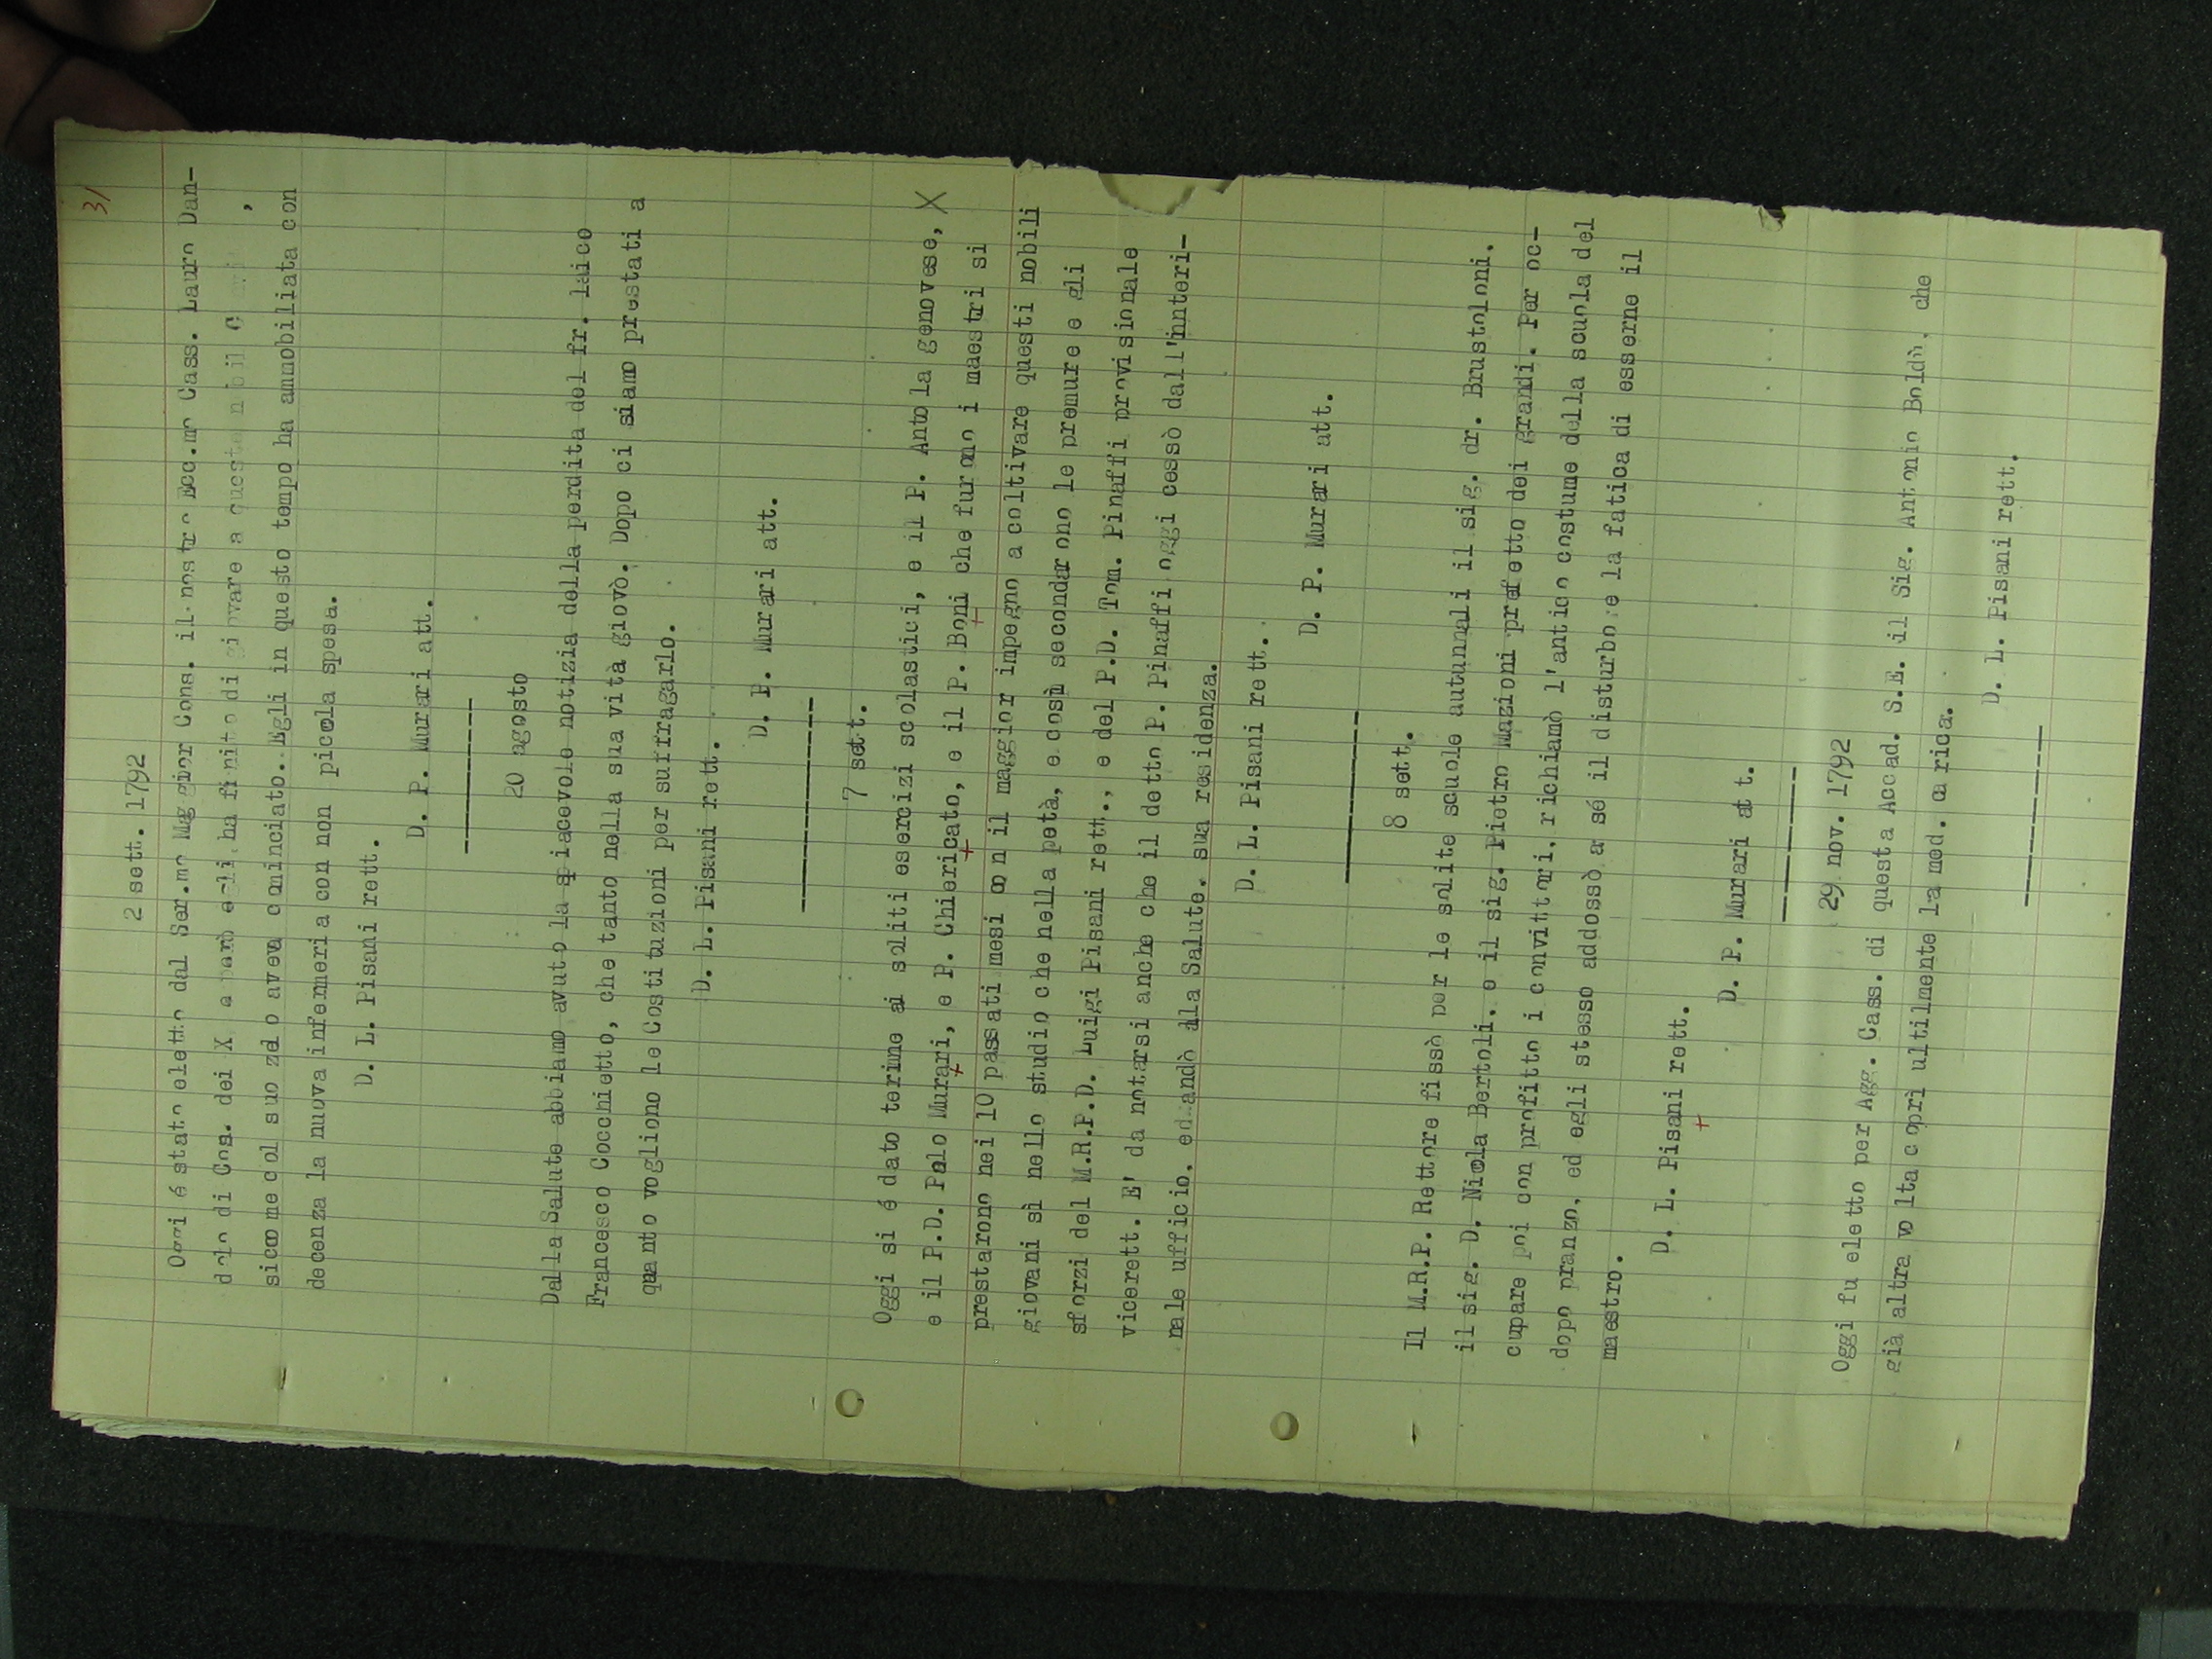 31
2 sett. 1792
Oggi é stato eletto dal Ser.mo Maggior Cons. il nostro Ecc.mo Cass. Lauro Dan-
dolo di Cons. dei X e però egli ha finito di giovare a questo nobil
siccome col suo zelo aveva cominciato. Egli in questo tempo ha ammobiliata con
decenza la nuova infermeria con non picola spesa.
D. L. Pisani rett.
D. P. Murari att.
20 agosto
Dalla Salute abbiamo avuto la spiacevole notizia della perdita del fr. laico
Francesco Cocchietto, che tanto nella sua vità giovò. Dopo ci siamo prestati a
quanto vogliono le Costituzioni per suffragarlo.
D. L. Pisani rett.
D. P. Murari att.
7 sett.
Oggi si é dato terime ai soliti esercizi scolastici, e il P. Antola genovese, X
e il P.D. Palo Murari, e P. Chiericato, e il P. Boni che furono i maestri si
prestarono nei 10 passati mesi con il maggior impegno a coltivare questi nobili
giovani sì nello studio che nella petà, e così secondarono le premure e gli
sforzi del M.R.P.D. Luigi Pisani rett., e del P.D. Tom. Pinaffi provisionale
vicerett. E' da notarsi anche che il detto P. Pinaffi oggi cessò dall'innteri-
nale ufficio, ed andò alla Salute, sua residenza.
D. L. Pisani rett.
D. P. Murari att.
8 sett.
Il M.R.P. Rettore fissò per le solite scuole autunnali il sig. dr. Brustoloni.
il sig. D. Niola Bertoli. e il sig. Pietro Mazioni prefetto dei grandi. Per oc-
cupare poi con profitto i convittori, richiamò l'antico costume della scuola del
dopo pranzo, ed egli stesso addossò a sé il disturbo e la fatica di esserne il
maestro.
D. L. Pisani rett.
D. P. Murari att.
29 nov. 1792
Oggi fu eletto per Agg. Cass. di questa Accad. S.E. il Sig. Antonio Boldù, che
già altra volta coprì ultilmente la med. carica.
D. L. Pisani rett.